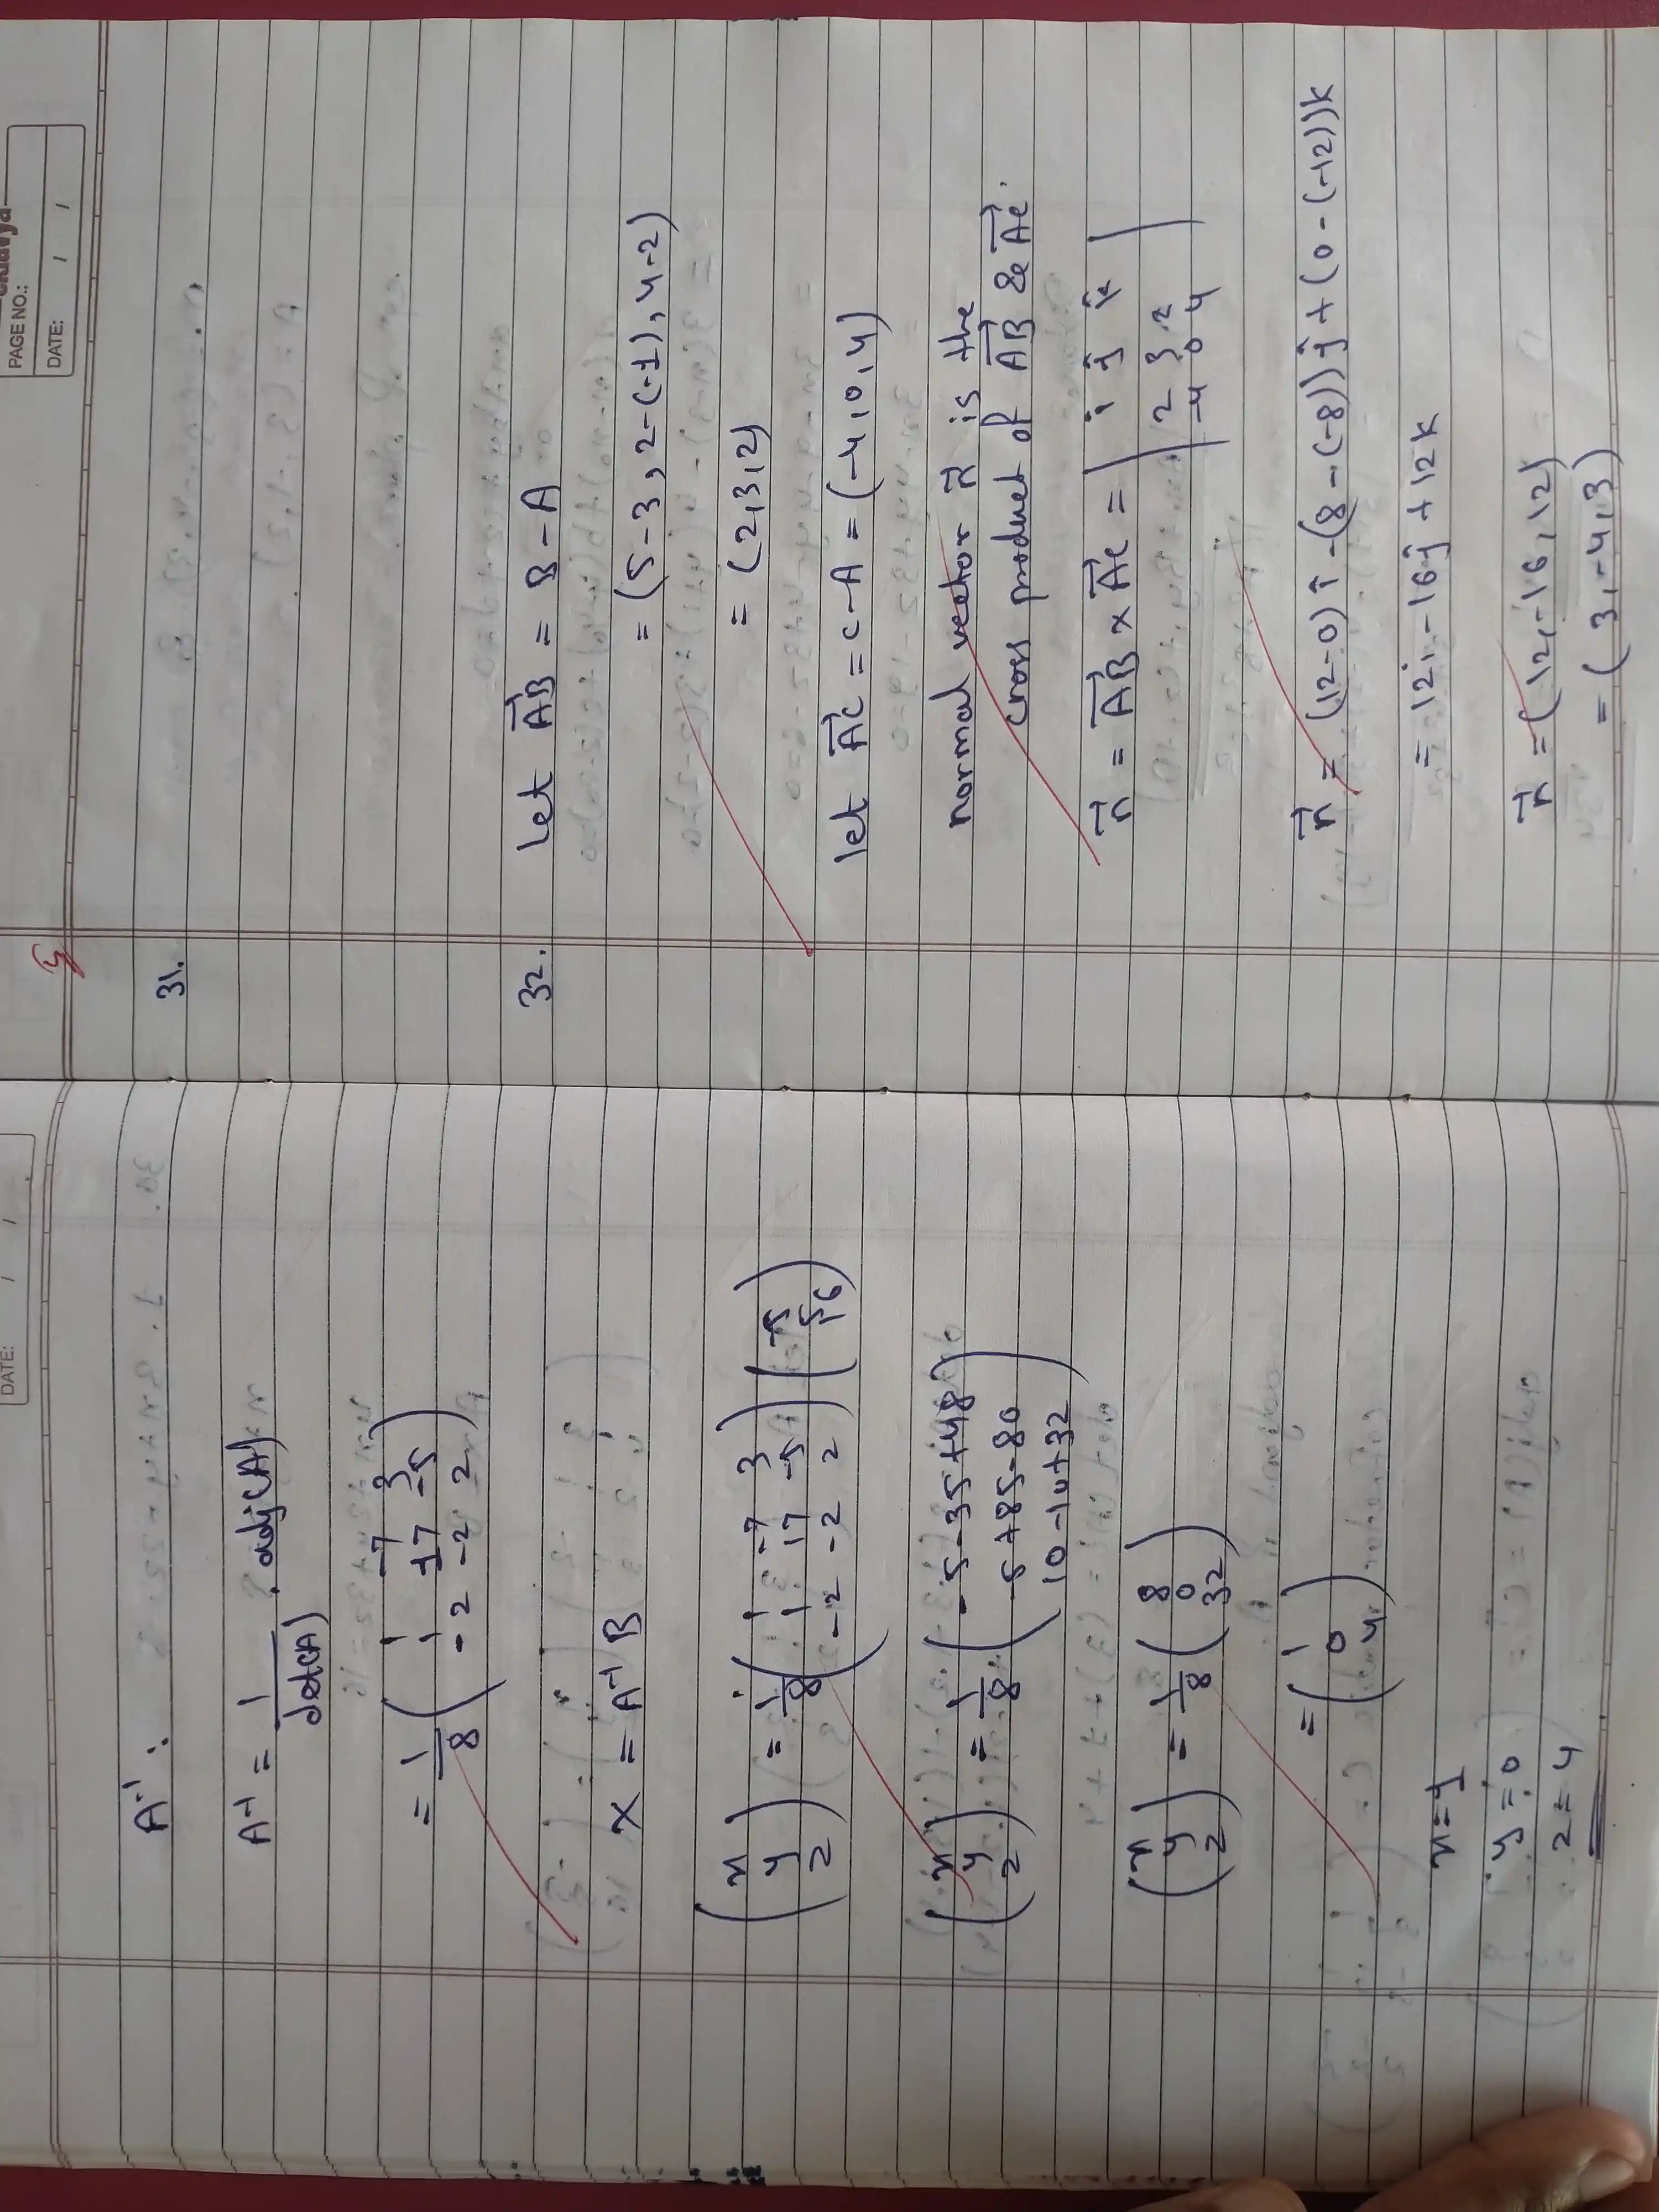 DATE: / /
A⁻¹ :
A⁻¹ = 1/det(A) . adj(A)
= 1/8 ( 1 -7 3
1 17 -5
-2 -2 2 )
X = A⁻¹ B
( x y z ) = 1/8 ( 1 -7 3
1 17 -5
-2 -2 2 ) ( -5 5 16 )
( x y z ) = 1/8 ( -5 -35 +48
-5 +85 -80
10 -10 +32 )
( x y z ) = 1/8 ( 8 0 32 )
= ( 1 0 4 )
x = 1
y = 0
z = 4
PAGE NO.:
DATE: / /
31.
32. let AB = B - A
= (5-3, 2-(-1), 4-2)
= (2,3,2)
let AC = C - A = (-4,0,4)
normal vector n is the
cross product of AB & AC.
n = AB x AC = | i j k
2 3 2
-4 0 4 |
n = (12-0) i - (8-(-8)) j + (0-(-12))k
= 12i - 16j + 12k
n = (12, -16, 12)
= (3, -4, 3)